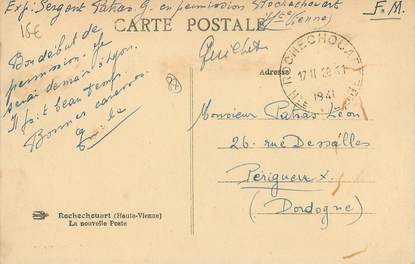 Exp. Sergent Patras. G. en permission Rochechouart
Hte Vienne
F.M.
15€
CARTE POSTALE
Guichet
Adresse
ROCHECHOUART
17 II
1941
HTE VIENNE
Bon début de
permission. Je
serai demain à Lyon.
Il fait beau temps.
Bonnes caresses.
Emile
Monsieur Patras Léon
26 rue Dessalles
Périgueux.
(Dordogne)
Rochechouart (Haute-Vienne)
La nouvelle Poste